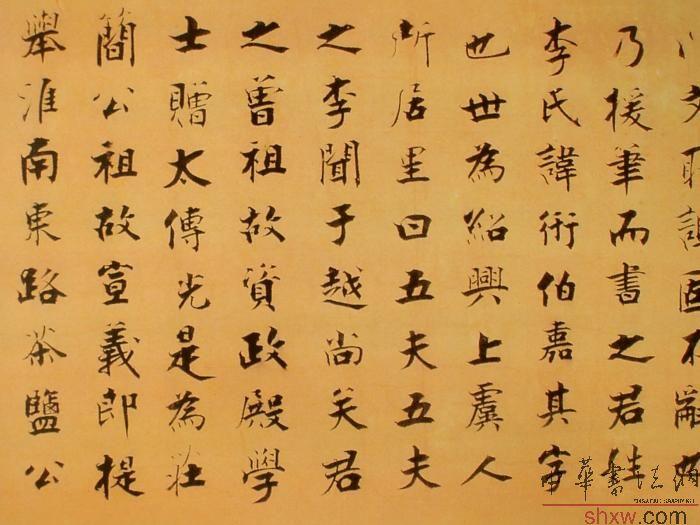 固不
乃援筆而書之君姓
李氏諱術伯嘉其字
也世為紹興上虞人
所居里曰五夫五夫
之李聞于越尚矣君
之曾祖故資政殿學
士贈太傅光是為莊
簡公祖故宣義郎提
舉淮南東路茶鹽公
中華書法網
shxw.com